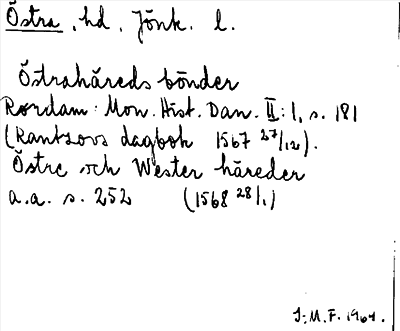 Östra, hd, Jönk. l.
Östrahäreds bönder
Rørdam: Mon. Hist. Dan. II:1, s. 181
(Rantzovs dagbok 1567 27/12).
Östre och Wester häreder
a.a. s. 252 (1568 28/1)
J.M.F. 1964.